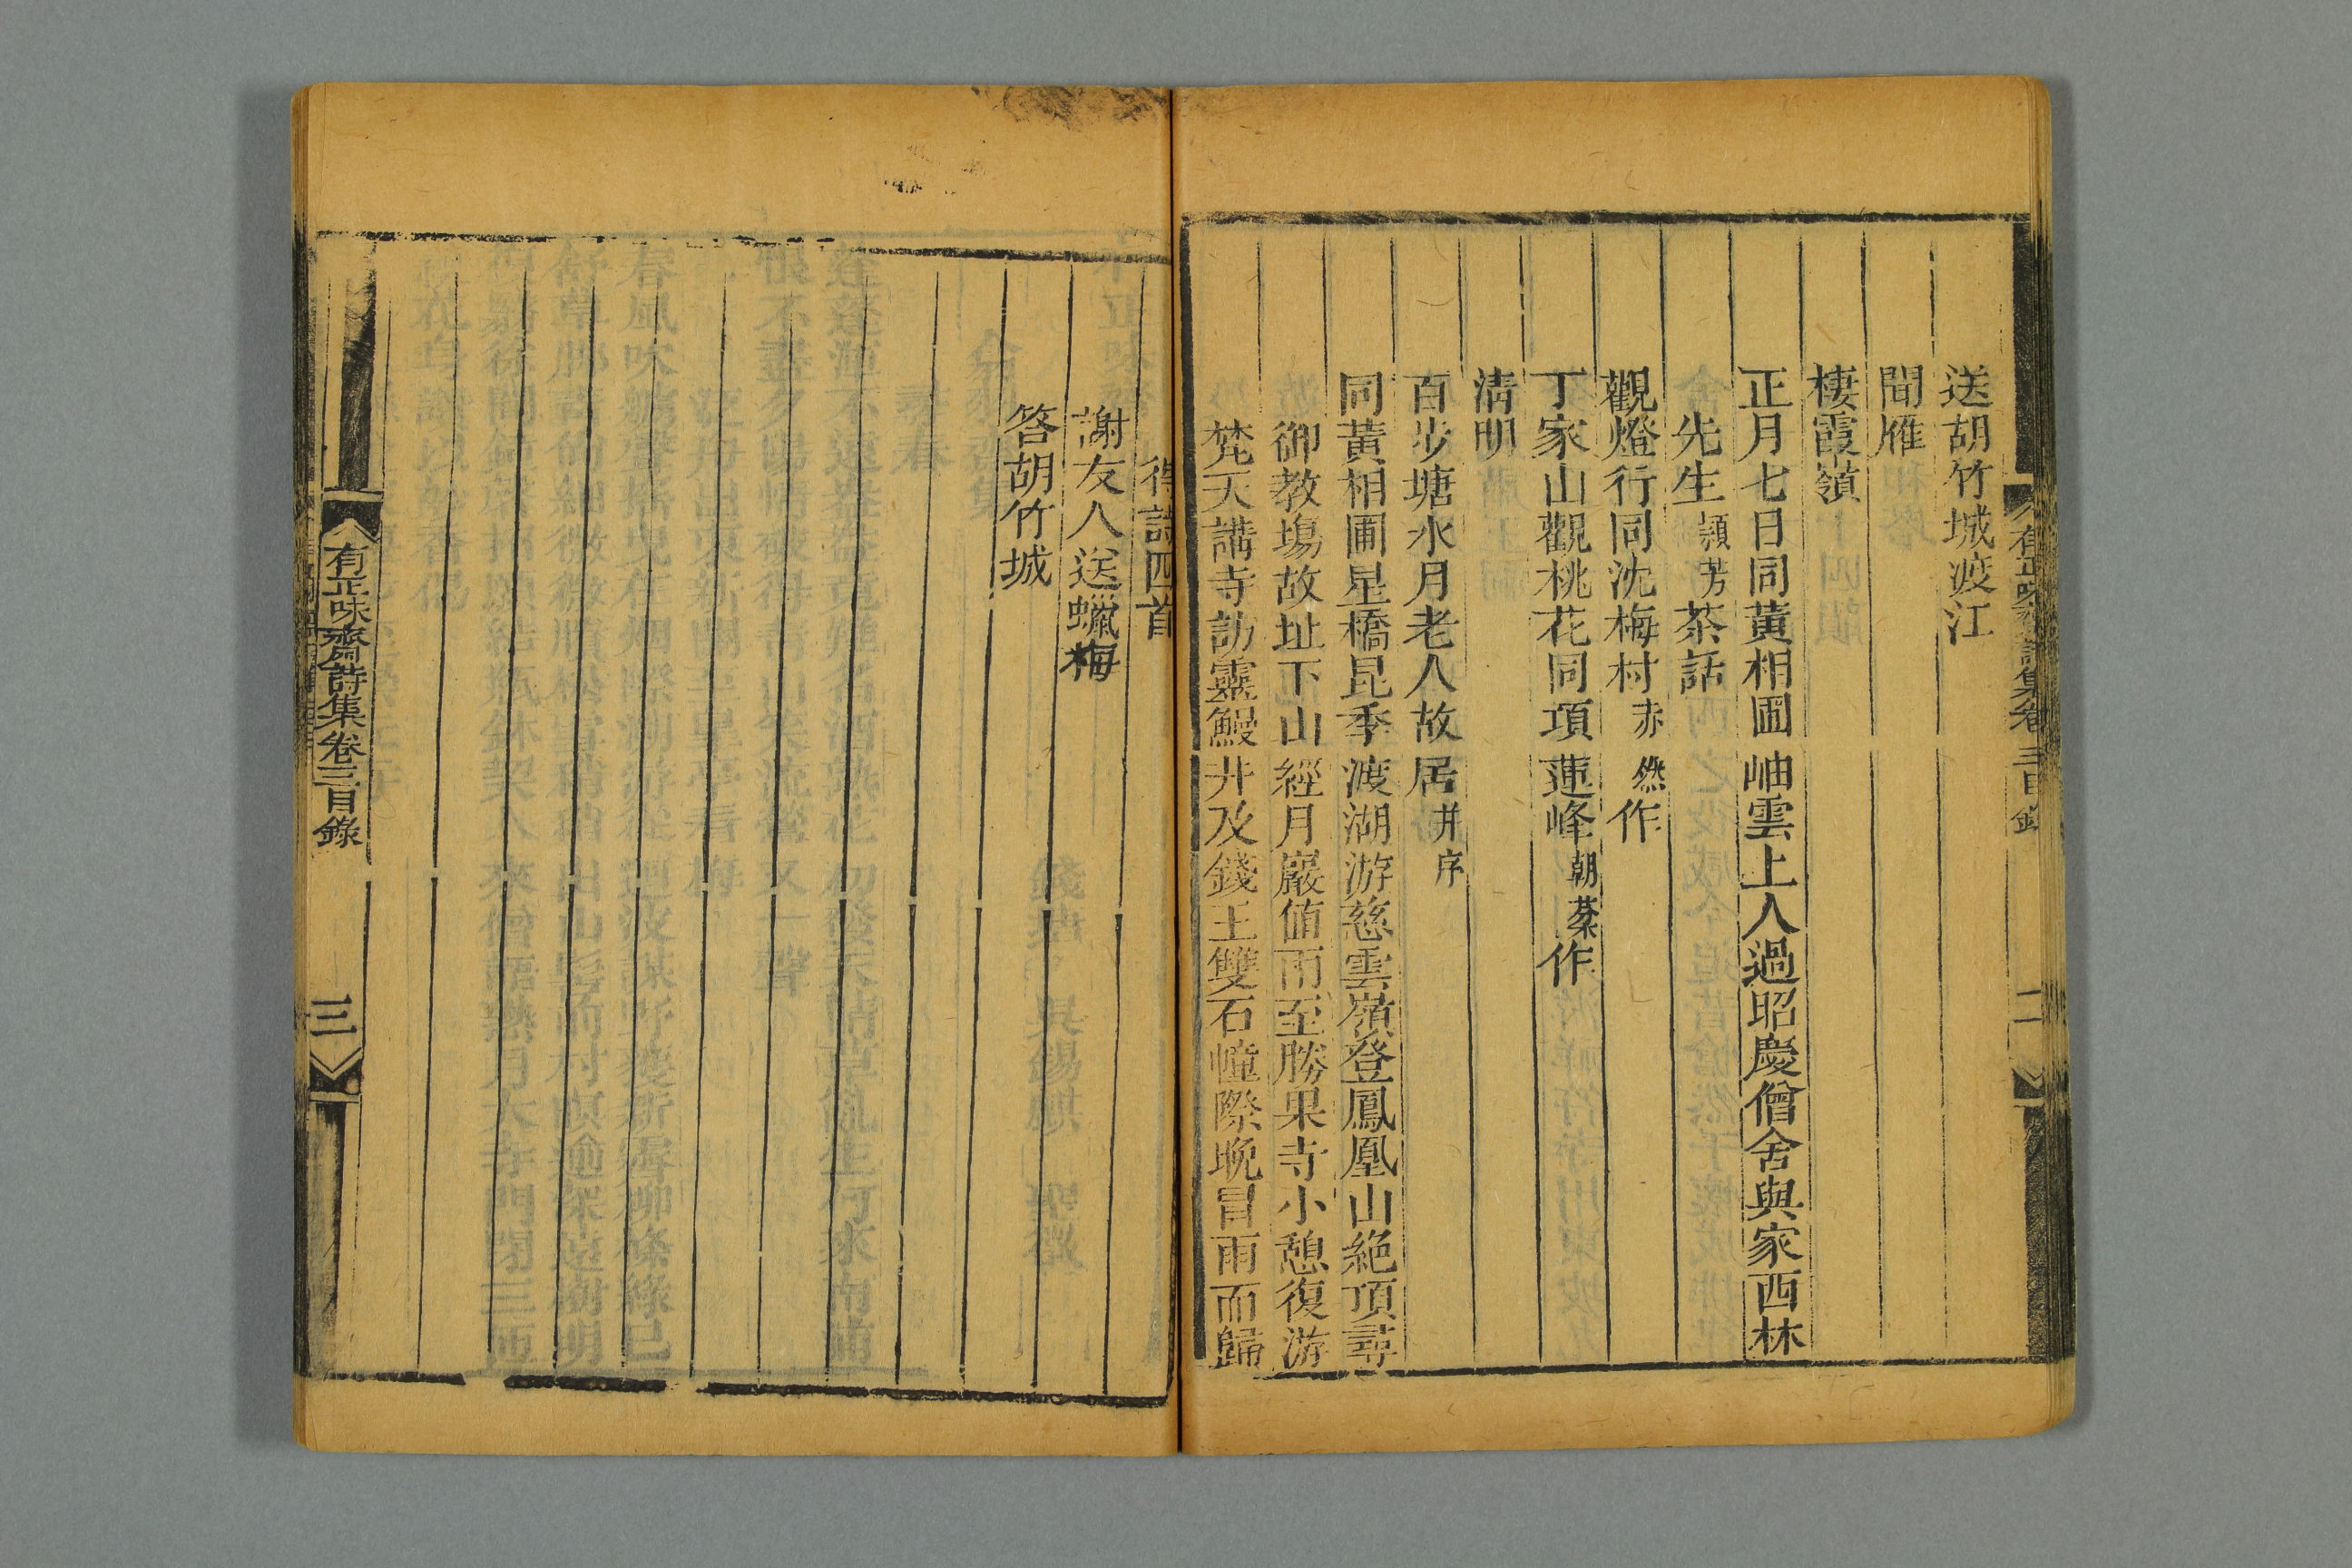 送胡竹城渡江
聞雁
棲霞嶺
正月七日同黃相圃岫雲上人過昭慶僧舍與家西林
先生穎芳茶話
觀燈行同沈梅村赤然作
丁家山觀桃花同項蓮峰朝棻作
清明
百步塘水月老人故居并序
同黃相圃星橋昆季渡湖游慈雲嶺登鳳凰山絕頂尋
御教塲故址下山經月巖值雨至勝果寺小憩復游
梵天講寺訪靈鰻井及錢王雙石幢際晚冒雨而歸
得詩四首
謝友人送蠟梅
答胡竹城
有正味齋詩集卷三目錄
三